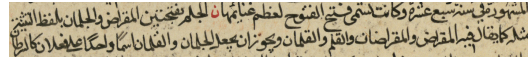 المشهورة في سنة سبع عشرة وكانت تسمى فتح الفتوح لعظم غنائمها ن الجلم بفتحتين المقراض والجلمان بلفظ التثنية
مثله كما يقال فيه المقراض والمقراضان والقلم والقلمان ويجوز ان يجعل الجلمان والقلمان اسما واحدا على فعلان كالسرطان